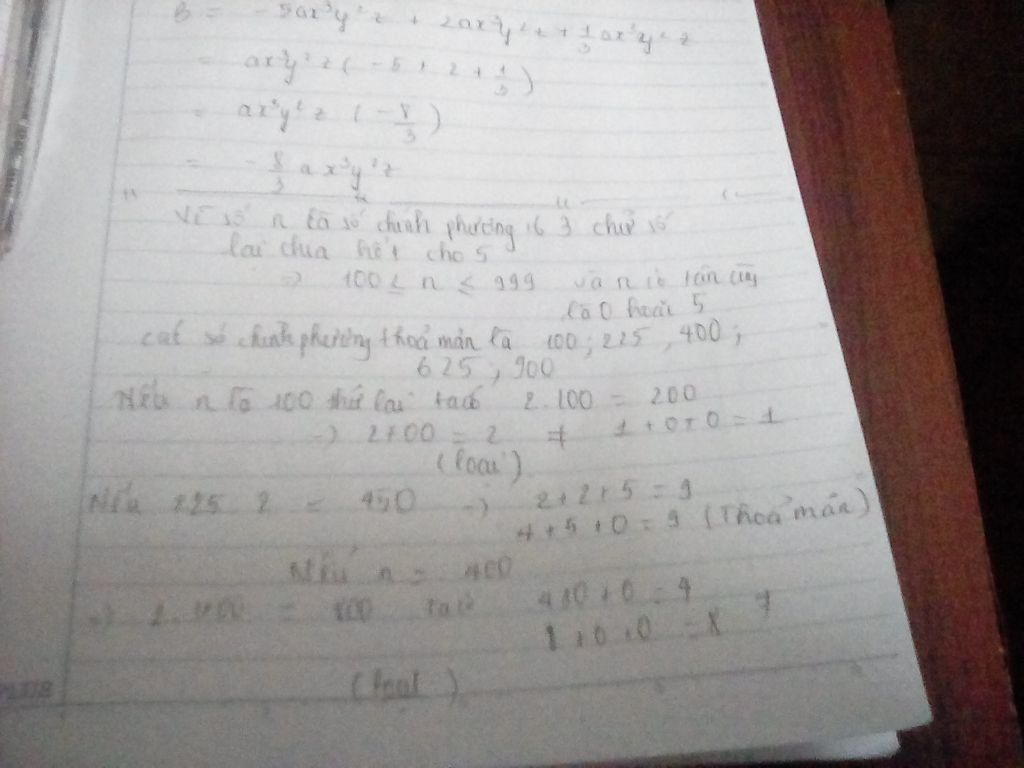 B = - 5ax³y²z + 2ax³y²z + 1/3 ax³y²z
= ax³y²z ( - 5 + 2 + 1/3 )
= ax³y²z ( - 8/3 )
= - 8/3 ax³y²z
Vì số n là số chính phương có 3 chữ số
lại chia hết cho 5
=> 100 ≤ n ≤ 999 và n có tận cùng
là 0 hoặc 5
các số chính phương thoả mãn là 100 ; 225 , 400 ;
625 , 900
Nếu n là 100 thì lại ta có 2.100 = 200
=> 2+00 = 2 ≠ 1 + 0 + 0 = 1
(loại)
Nếu 225 2 = 450 => 2 + 2 + 5 = 9
4 + 5 + 0 = 9 (Thoả mãn)
Nếu n = 400
=> 2.400 = 800 ta có 4+0+0 = 4 ≠
8+0+0 = 8
(loại)